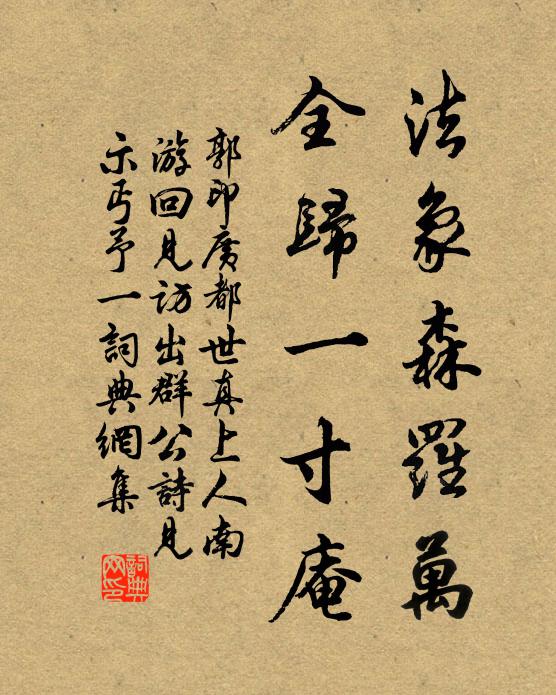 法象森羅萬
全歸一寸庵
郭印廣都世真上人南
游回見訪出群公詩見
示丐予一詞典網集
詞典
网印